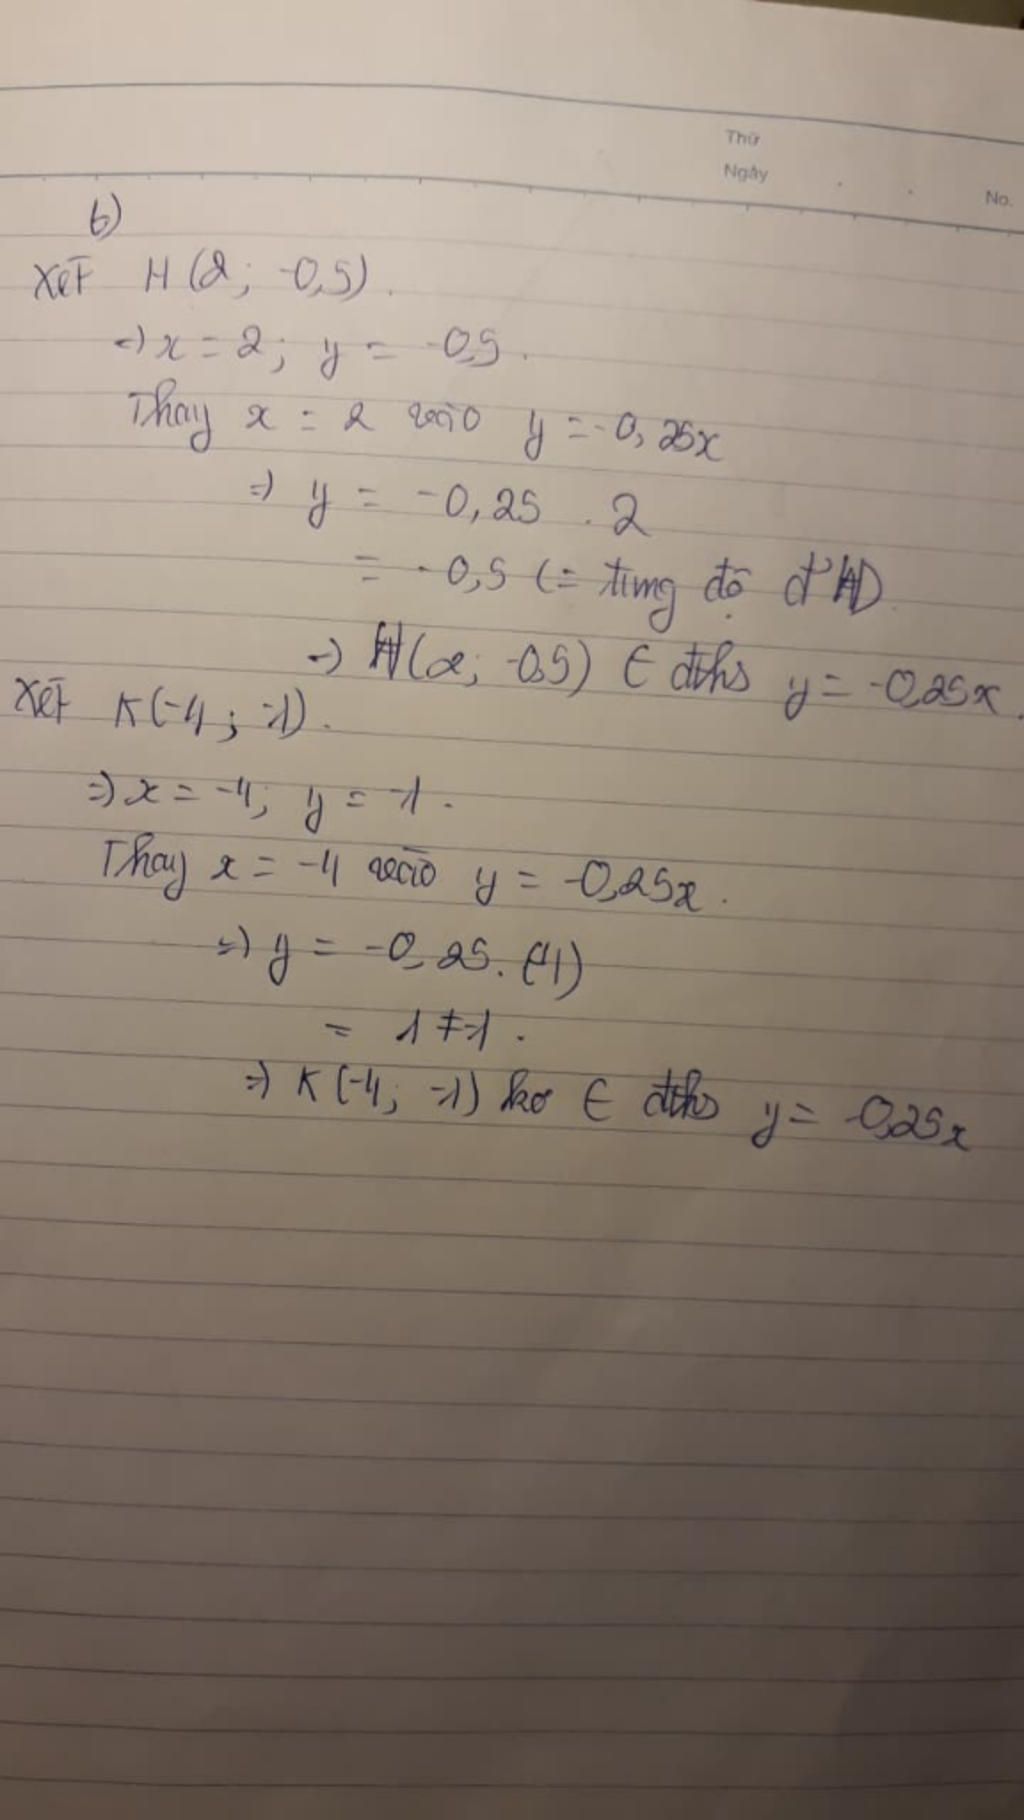 Thứ
Ngày
No.
b)
Xét H(2; -0,5).
=> x = 2; y = -0,5.
Thay x = 2 vào y = -0,25x
=> y = -0,25 . 2
= -0,5 (= tung độ đ'
=> H(2; -0,5) ∈ đths y = -0,25x.
Xét K(-4; -1).
=> x = -4; y = -1.
Thay x = -4 vào y = -0,25x.
=> y = -0,25. (-4)
= 1 ≠ -1.
=> K(-4; -1) ko ∈ đths y = -0,25x